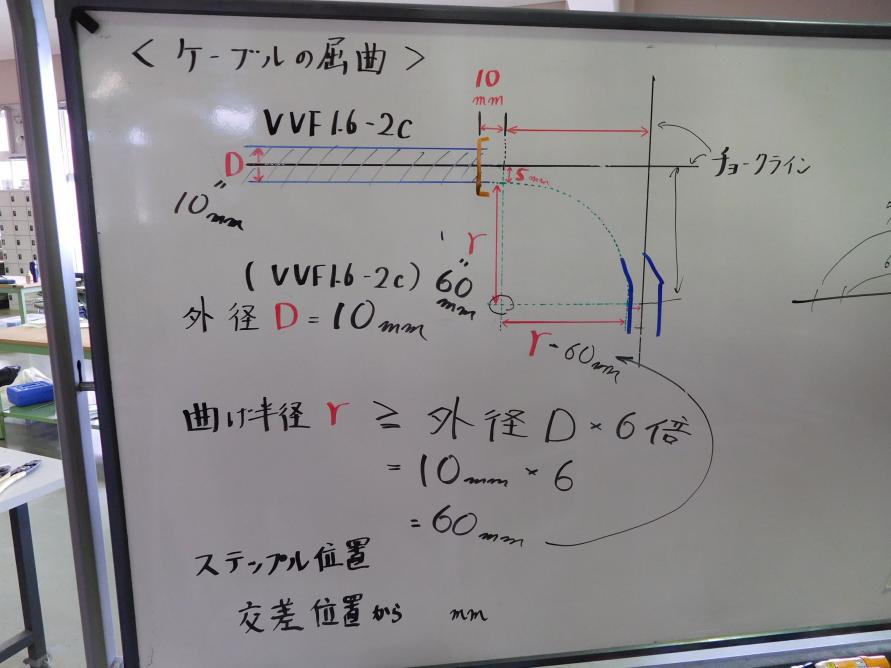 ＜ケーブルの屈曲＞
10
mm
VVF1.6-2C
D
10mm
5mm
チョークライン
r
(VVF1.6-2C) 60mm
外径D=10mm
r=60mm
曲げ半径 r ≧ 外径D×6倍
=10mm×6
=60mm
ステップル位置
交差位置から　mm